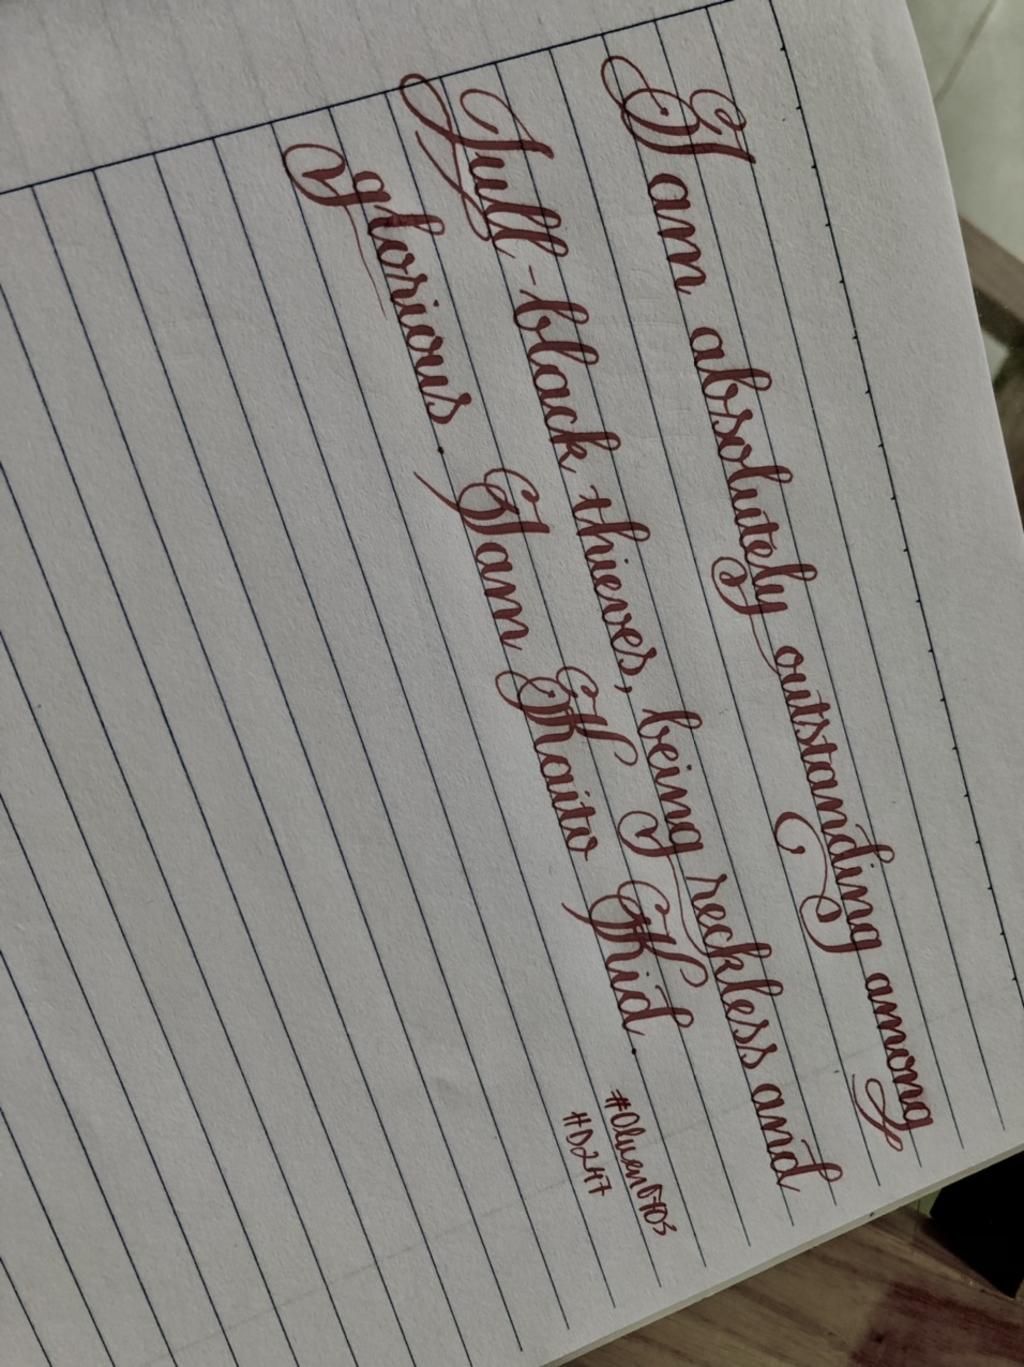 I am absolutely outstanding among
Full-black thieves, being reckless and
glorious. I am Kaito Kid.
#D247